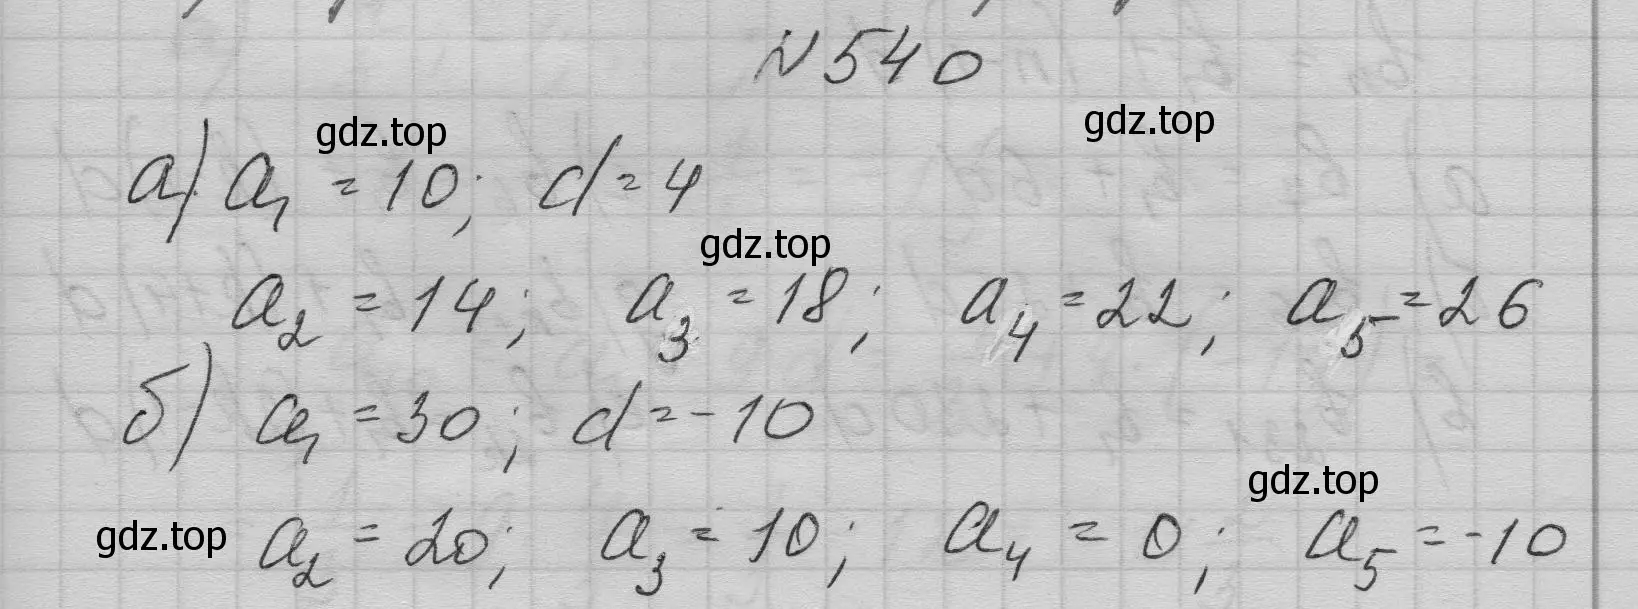 № 540
gdz.top
gdz.top
а) a₁ = 10; d = 4
gdz.top
a₂ = 14; a₃ = 18; a₄ = 22; a₅ = 26
б) a₁ = 30; d = -10
gdz.top
gdz.top
a₂ = 20; a₃ = 10; a₄ = 0; a₅ = -10